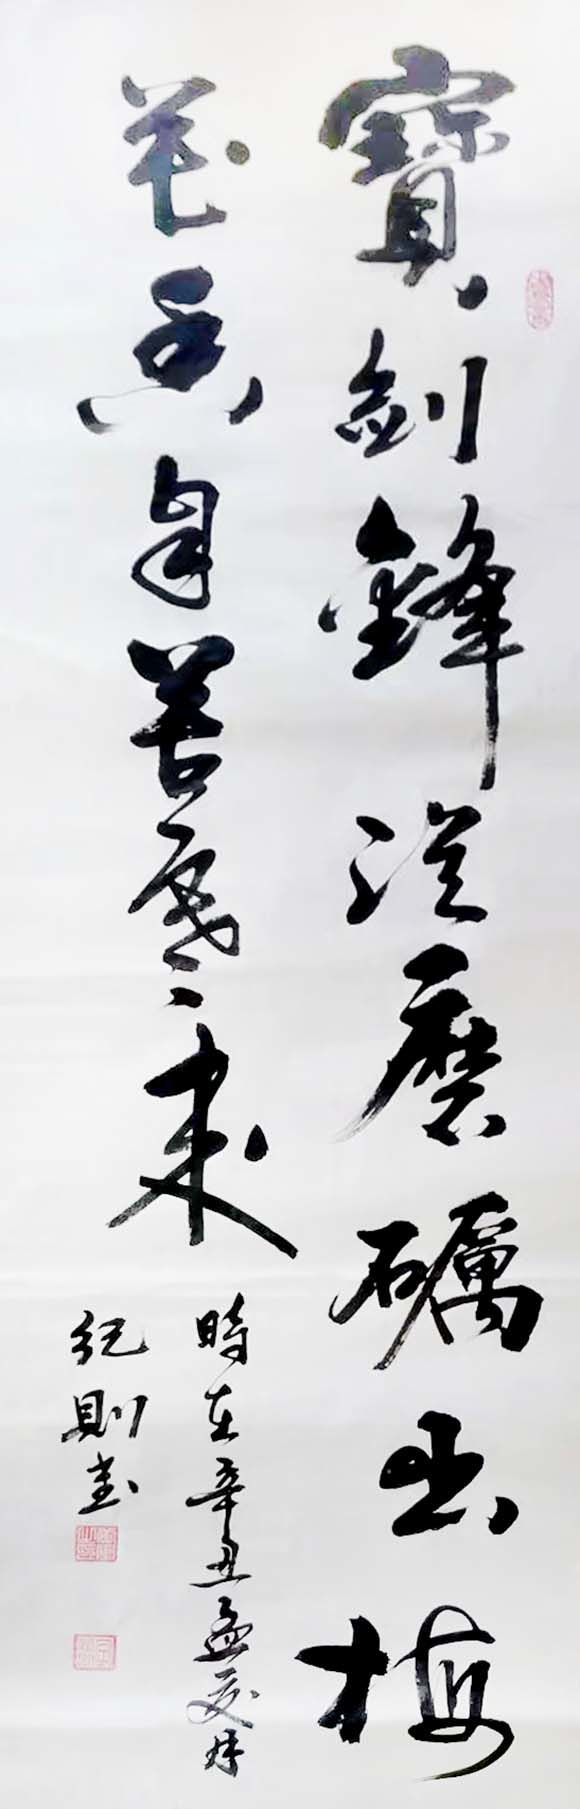 寶劍鋒從磨礪出梅
花香自苦寒來
時在辛丑孟夏月
紀則書